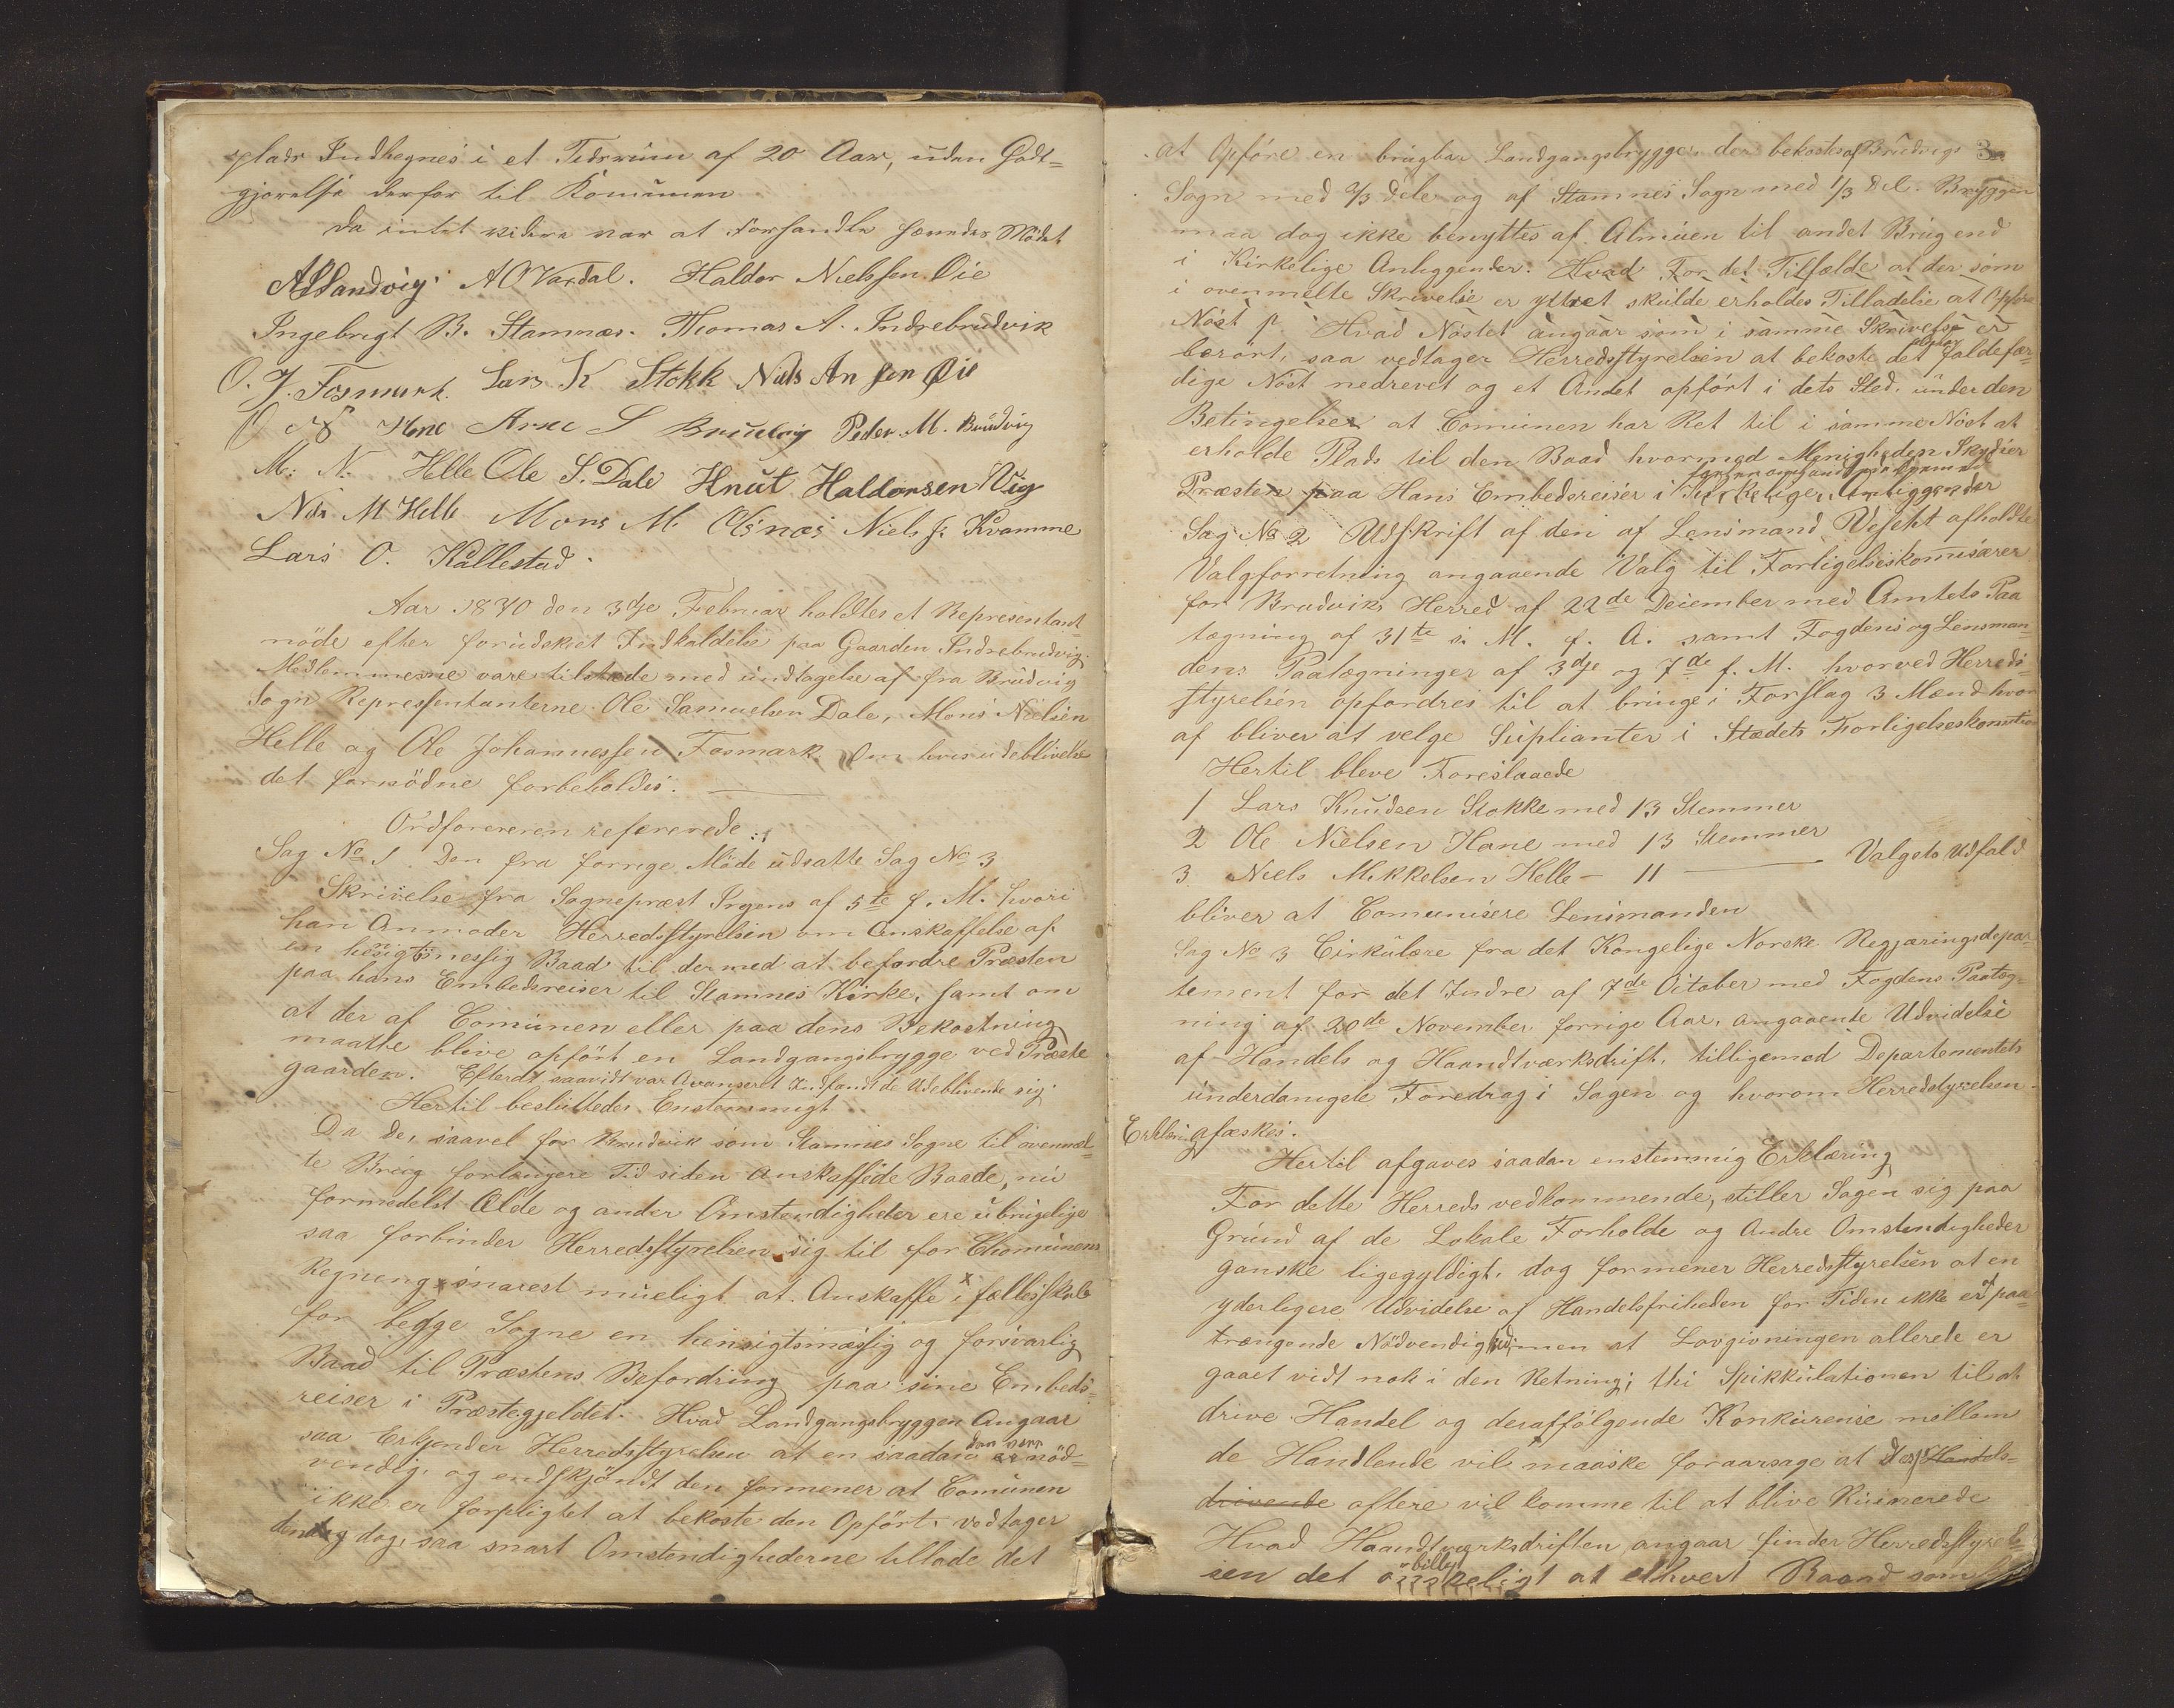 plads Indhegnes i et Tidsrum af 20 Aar, uden Godt-
gjørelse derfor til Komunen
Da intet videre var at Forhandle hævedes Mødet
A Sandvig. A O Vardal. Haldor Nielssen Øie
Ingebrigt B. Stamnæs. Thomas A. Indrebrudvik
O. J. Fosmark. Lars K Stokk Niels An sen Øie
O N Hane Arne S Brudvig Peder M. Brudvig
M: N. Helle Ole S. Dale Knut Haldorsen Vig
Nils M Helle Mons M. Olsnæs Niels J: Kvamme
Lars O. Kallestad.
Aar 1870 den 3dje Februar holdtes et Representant-
møde efter forudskeet Indkaldelse paa Gaarden Indrebrudvig.
Medlemmerne vare tilstæde med undtagelse af fra Brudvig
Sogn Representanterne Ole Samuelsen Dale, Mons Nielsen
Helle og Ole Johannessen Fosmark Om hvis udeblivelse
det fornødne forbeholdes.
Ordføreren refererede:
Sag No 1 Den fra forrige Møde udsatte Sag No 3
Skrivelse fra Sognepræst Irgens af 5te f. M. hvori
han Anmoder Herredsstyrelsen om Anskaffelse af
en hensigtsmessig Baad til dermed at befordre Præsten
paa hans Embedsreiser til Stamnes Kirke, samt om
at der af Comunen eller paa dens Bekostning
maatte blive opført en Landgangsbrygge ved Præste
gaarden. Efterat saavidt var Avanseret Indfandt de Udeblivende sig.
Hertil besluttedes Enstemmigt
Da de, saavel for Brudvik som Stamnes Sogne til ovenmel-
te Brug forlængere Tid siden Anskaffede Baade, nu
formedelst Ælde og ander Omstendigheder ere ubrugelige
saa forbinder Herredsstyrelsen sig til for Chomunens
Regneng snarest mueligt at Anskaffe x i fællesskab
for begge Sogne en hensigtsmæssig og forsvarlig
Baad til Præstens Befordring paa sine Embeds-
reiser i Præstegjeldet. Hvad Landgangsbryggen Angaar
saa Erkjender Herredsstyrelsen at en saadan kan være nød-
vendig, og endskjøndt den formener at Comunen
ikke er forpligtet at bekoste den Opført, vedtager
den dog, saa snart Omstendighederne tillade det
3
at Opføre en brugbar Landgangsbrygge der bekostes af Brudvigs
Sogn med 2/3 dele og af Stamnes Sogn med 1/3 del. Bryggen
maa dog ikke benyttes af Almuen til andet Brug end
i Kirkelige Anliggender. Hvad For det Tilfælde at der som
i ovenmelte Skrivelse er yttret skulde erholdes Tilladelse at Opføre
Nøst p. Hvad Nøstet angaar som i samme Skrivelse er
berørt, saa vedtager Herredsstyrelsen at bekoste det faldefær-
dige Nøst nedrevet og et Andet opført i dets Sted. under den
Betingelse at Comunen har Ret til i samme Nøst at
erholde Plads til den Baad hvormed Menigheden Skydser
Præsten paa Hans Embedsreiser i Kirkeliger Anliggender
Sag No 2 Udskrift af den af Lensmand Vefeht afholdte
Valgforretning angaaende Valg til Forligelseskomisærer
for Brudviks Herred af 22de December med Amtets Paa
tegning af 31te s. M. f. A. samt Fogdens og Lensman-
dens Paategninger af 3dje og 7de f. M. hvorved Herreds-
styrelsen opfordres til at bringe i Forslag 3 Mænd hvor
af bliver at velge Suplianter i Stædets Forligelseskomition
Hertil bleve Foreslaaede
1 Lars Knudsen Stokke med 13 Stemmer
2 Ole Nielsen Hane med 13 Stemmer
3 Niels Mikkelsen Helle — 11 — Valgets Udfald
bliver at Comunisere Lensmanden
Sag No 3 Cirkulære fra det Kongelige Norske Regjæringsdepar-
tement for det Indre af 7de October med Fogdens Paateg-
ning af 20de November forrige Aar, angaaente Udvidelse
af Handels og Haandtværksdrift, tilligemed Departementets
underdanigste Foredrag i Sagen og hvorom Herredstyrelsen
Erklæring afæskes.
Hertil afgaves saadan enstemmig Erklæring
For dette Herreds vedkommende, stiller Sagen sig paa
Grund af de Lokale Forholde og Andre Omstendigheder
ganske ligegyldigt, dog formener Herredsstyrelsen at en
yderligere Udvidelse af Handelsfriheden for Tiden ikke er af paa-
trængende Nødvendighed, men at Lovgivningen allerede er
gaaet vidt nok i den Retning; thi Spikkulationen til at
drive Handel og deraffølgende Konkurense mellem
de Handlende vil maaske foraarsage at disse Handels-
drivende oftere vil komme til at blive Ruinerede
Hvad Haandtværksdriften angaar finder Herredsstyrel-
sen det billigt ønskeligt at ethvert Baand som